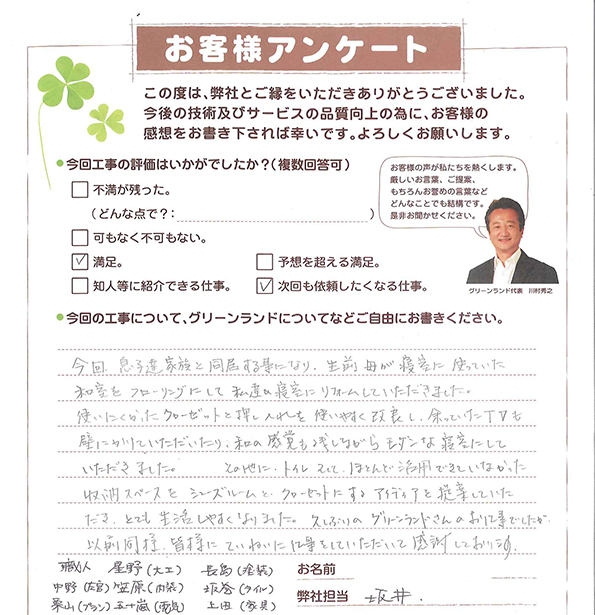 お客様アンケート
この度は、弊社とご縁をいただきありがとうございました。
今後の技術及びサービスの品質向上の為に、お客様の
感想をお書き下されば幸いです。よろしくお願いします。
•今回工事の評価はいかがでしたか？（複数回答可）
不満が残った。
（どんな点で？：　）
可もなく不可もない。
満足。　予想を超える満足。
知人等に紹介できる仕事。　次回も依頼したくなる仕事。
お客様の声が私たちを熱くします。
厳しいお言葉、ご提案、
もちろんお誉めの言葉など
どんなことでも結構です。
是非お聞かせください。
グリーンランド代表　川村秀之
•今回の工事について、グリーンランドについてなどご自由にお書きください。
今回、息子達家族と同居する事になり、生前母が寝室に使っていた
和室をフローリングにして私達の寝室にリフォームしていただきました。
使いにくかったクローゼットと押し入れを使いやすく改良し、余っていたTVも
壁にかけていただいたり、和の感覚も残しながらモダンな寝室にして
いただきました。　その他に、トイレ　そして、ほとんど活用できていなかった
収納スペースをシューズルームと、クローゼットにするアイディアを提案していた
だき、とても生活しやすくなりました。久しぶりのグリーンランドさんのお仕事でしたが、
以前同様、皆様にていねいに仕事をしていただいて感謝しております。
職人　星野(大工)　長島(塗装)
中野(左官)　笠原(内装)　坂巻(タイル)
栗山(プラン)　五十嵐(電気)　上田(家具)
お名前
弊社担当　坂井.